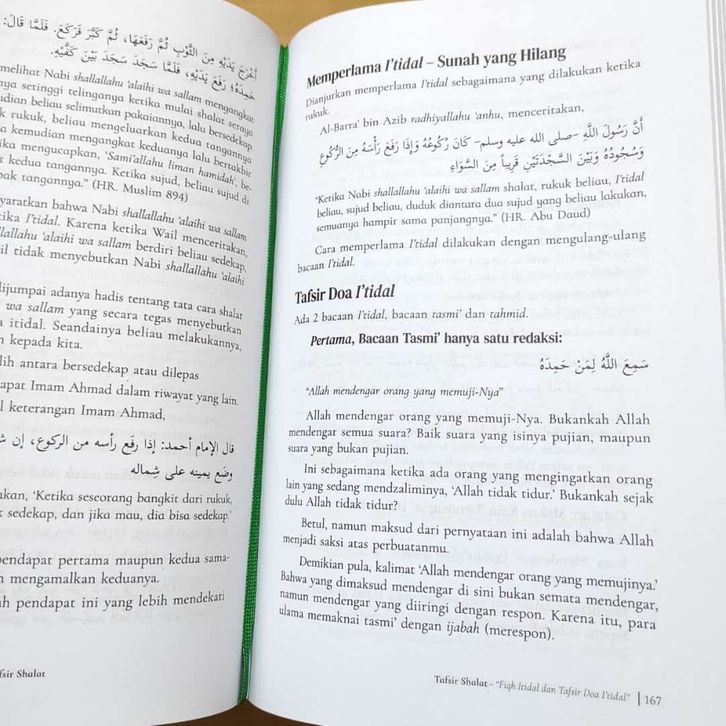 أَخْرَجَ يَدَيْهِ مِنَ الثَّوْبِ ثُمَّ رَفَعَهَا، ثُمَّ كَبَّرَ فَرَكَعَ. فَلَمَّا قَالَ:
حَمِدَهُ؛ رَفَعَ يَدَيْهِ، فَلَمَّا سَجَدَ سَجَدَ بَيْنَ كَفَّيْهِ.
melihat Nabi shallallahu 'alaihi wa sallam mengangkat
nya setinggi telinganya ketika mulai shalat seraya
udian beliau selimutkan pakaiannya, lalu bersedekap
k rukuk, beliau mengeluarkan kedua tangannya
a kemudian mengangkat keduanya lalu bertakbir
ika mengucapkan, 'Sami'allahu liman hamidah', be-
t kedua tangannya. Ketika sujud, beliau sujud di
pak tangannya." (HR. Muslim 894)
yaratkan bahwa Nabi shallallahu 'alaihi wa sallam
ika I'tidal. Karena ketika Wail menceritakan,
lallahu 'alaihi wa sallam berdiri beliau sedekap,
il tidak menyebutkan Nabi shallallahu 'alaihi
dijumpai adanya hadis tentang tata cara shalat
wa sallam yang secara tegas menyebutkan
a itidal. Seandainya beliau melakukannya,
n kepada kita.
lih antara bersedekap atau dilepas
apat Imam Ahmad dalam riwayat yang lain.
l keterangan Imam Ahmad,
قال الإمام أحمد: إذا رفع رأسه من الركوع، إن ش
وضع يمينه على شماله
kan, 'Ketika seseorang bangkit dari rukuk,
sedekap, dan jika mau, dia bisa sedekap.'
pendapat pertama maupun kedua sama-
n mengamalkan keduanya.
ah pendapat ini yang lebih mendekati
fsir Shalat
Memperlama I'tidal – Sunah yang Hilang
Dianjurkan memperlama I'tidal sebagaimana yang dilakukan ketika
rukuk.
Al-Barra' bin Azib radhiyallahu 'anhu, menceritakan,
أَنَّ رَسُولَ اللَّهِ -صلى الله عليه وسلم- كَانَ رُكُوعُهُ وَإِذَا رَفَعَ رَأْسَهُ مِنَ الرُّكُوعِ
وَسُجُودُهُ وَبَيْنَ السَّجْدَتَيْنِ قَرِيبًا مِنَ السَّوَاءِ
"Ketika Nabi shallallahu 'alaihi wa sallam shalat, rukuk beliau, I'tidal
beliau, sujud beliau, duduk diantara dua sujud yang beliau lakukan,
semuanya hampir sama panjangnya." (HR. Abu Daud)
Cara memperlama I'tidal dilakukan dengan mengulang-ulang
bacaan I'tidal.
Tafsir Doa I'tidal
Ada 2 bacaan I'tidal, bacaan tasmi' dan tahmid.
Pertama, Bacaan Tasmi' hanya satu redaksi:
سَمِعَ اللَّهُ لِمَنْ حَمِدَهُ
"Allah mendengar orang yang memuji-Nya"
Allah mendengar orang yang memuji-Nya. Bukankah Allah
mendengar semua suara? Baik suara yang isinya pujian, maupun
suara yang bukan pujian.
Ini sebagaimana ketika ada orang yang mengingatkan orang
lain yang sedang mendzaliminya, 'Allah tidak tidur.' Bukankah sejak
dulu Allah tidak tidur?
Betul, namun maksud dari pernyataan ini adalah bahwa Allah
menjadi saksi atas perbuatanmu.
Demikian pula, kalimat 'Allah mendengar orang yang memujinya.'
Bahwa yang dimaksud mendengar di sini bukan semata mendengar,
namun mendengar yang diiringi dengan respon. Karena itu, para
ulama memaknai tasmi' dengan ijabah (merespon).
Tafsir Shalat - "Fiqh Itidal dan Tafsir Doa I'tidal" | 167